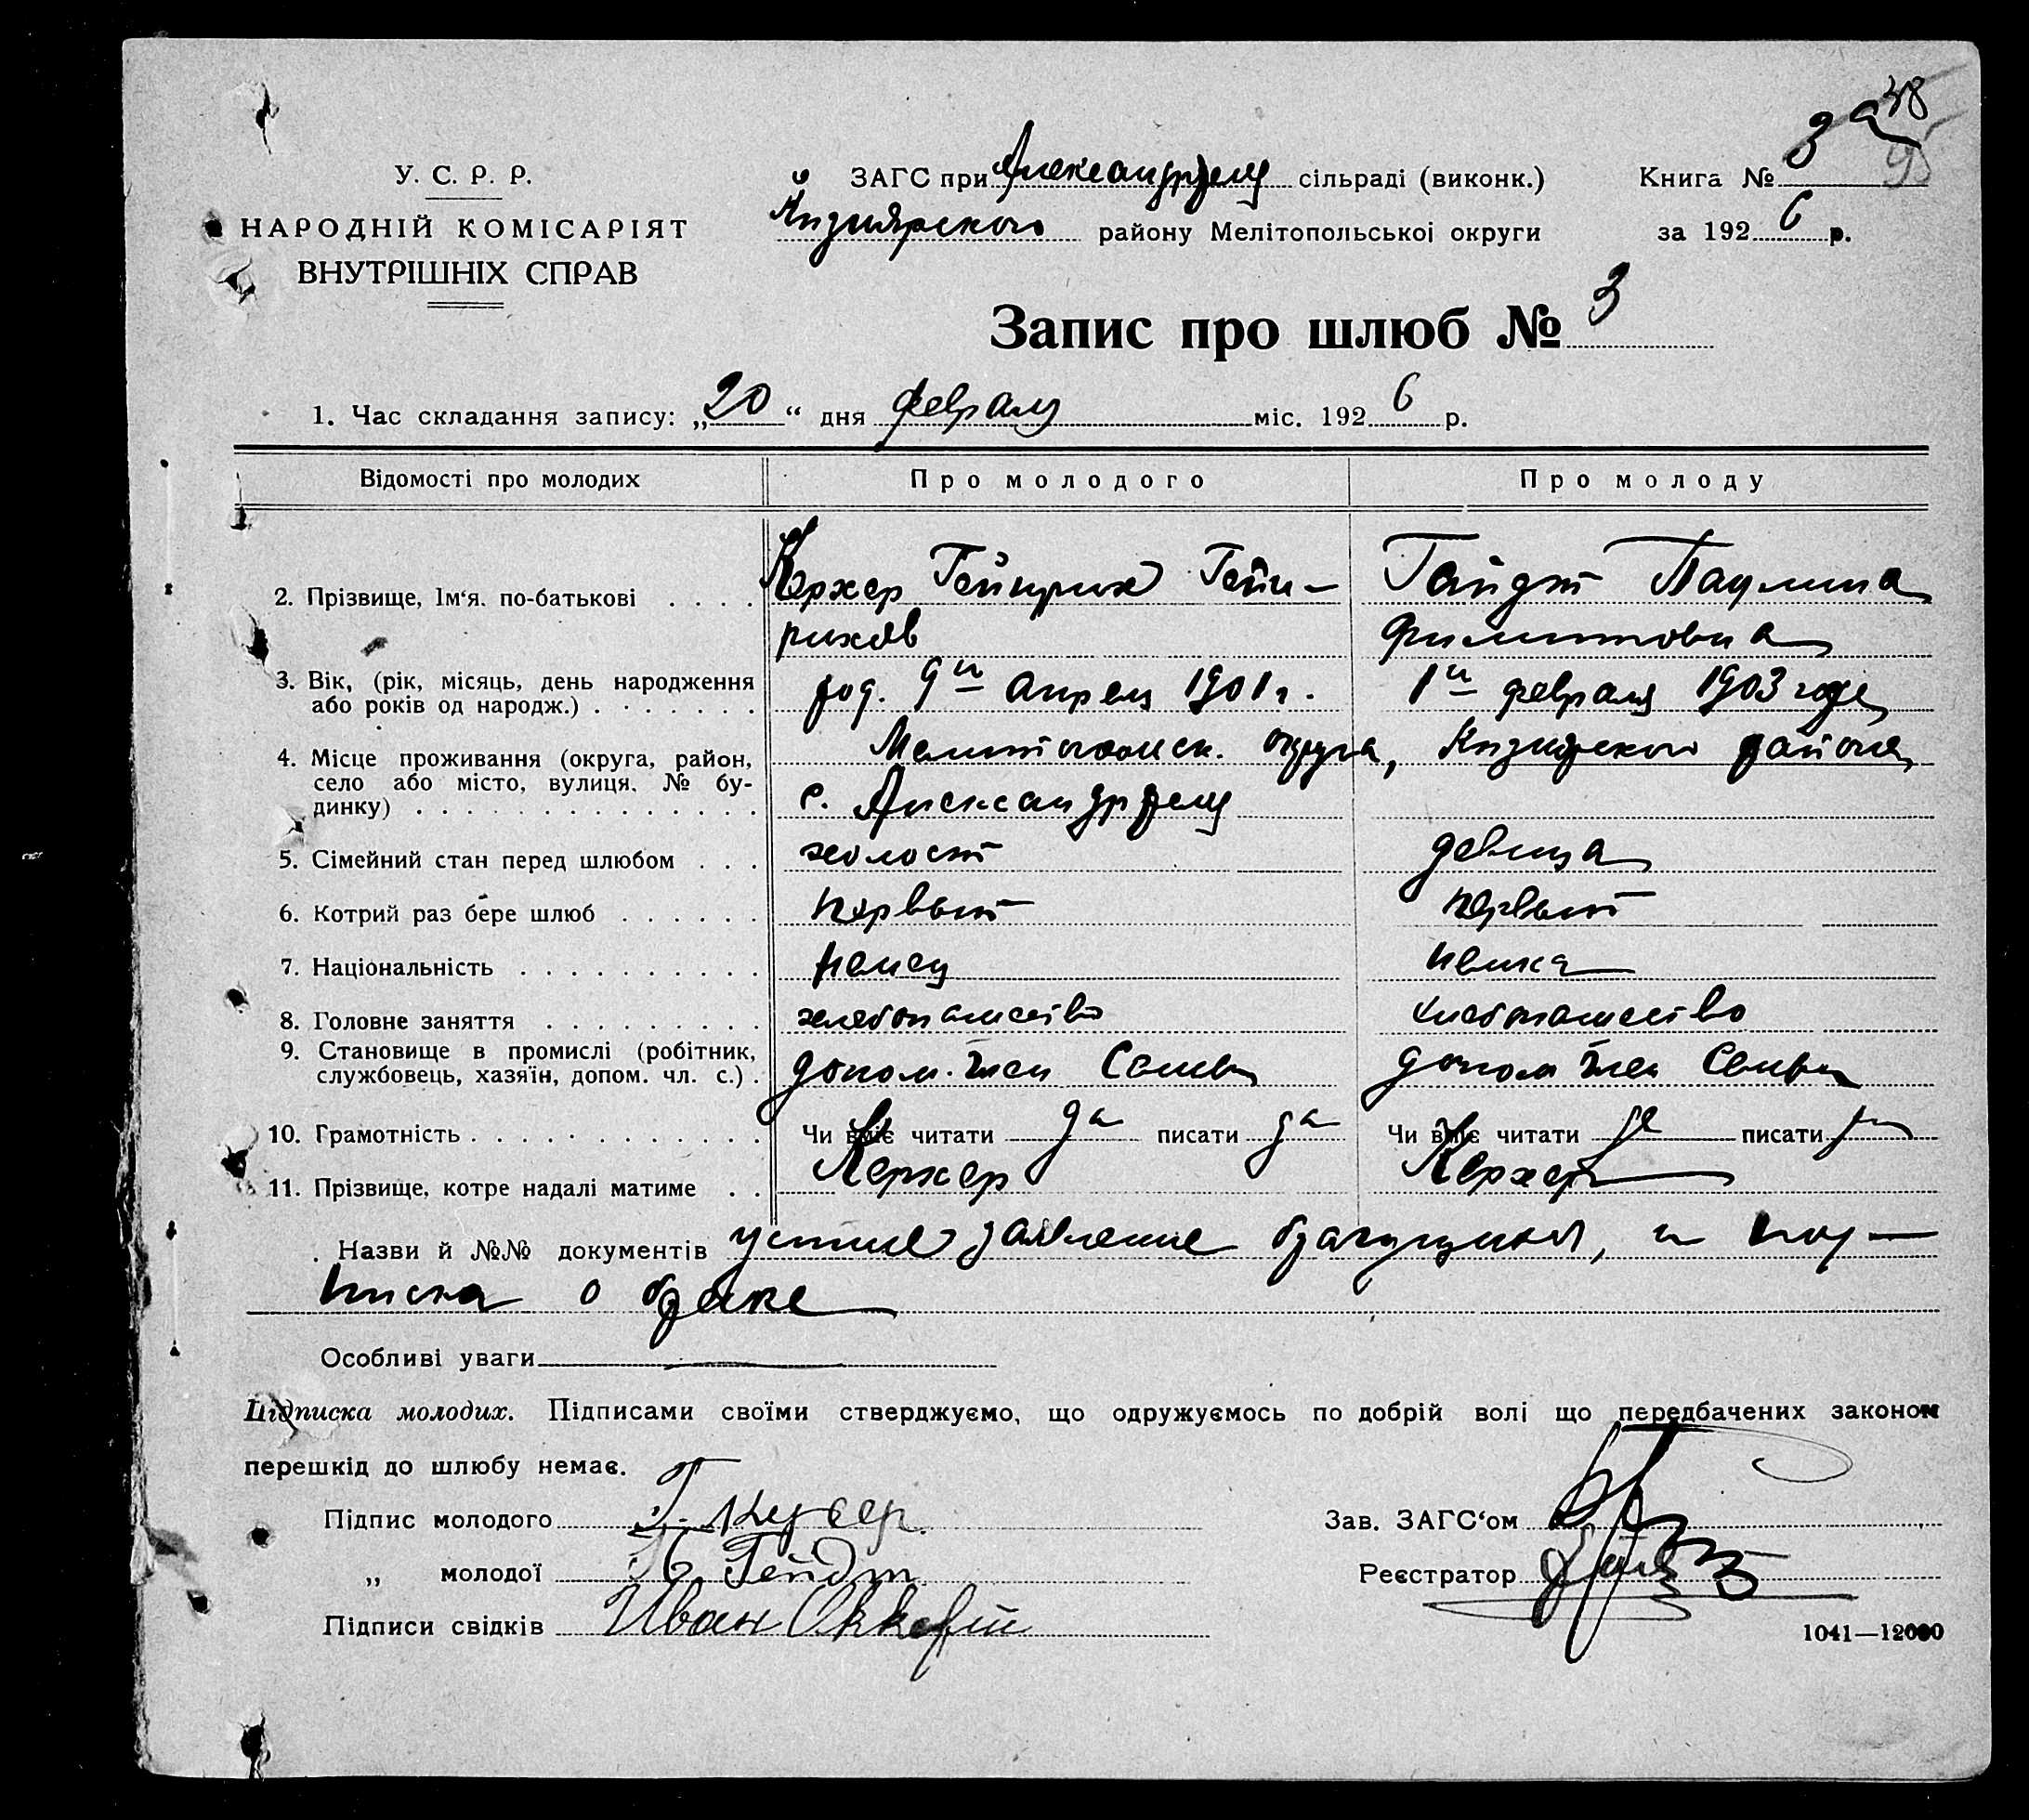 38
95
У. С. Р. Р.
НАРОДНІЙ КОМІСАРІЯТ
ВНУТРІШНІХ СПРАВ
ЗАГС при Александрфелд сільраді (виконк.)
Кизиярского району Мелітопольської округи
Книга № 3а
за 1926 р.
Запис про шлюб № 3
1. Час складання запису: „20“ дня февраля міс. 1926 р.
Відомості про молодих Про молодого Про молоду
2. Прізвище, Ім‘я. по-батькові Керхер Гейнрих Гейн- Гайдт Паулина
рихов Филипповна
3. Вік, (рік, місяць, день народження
або років од народж.) род. 9го апреля 1901 г. 1го февраля 1903 года
4. Місце проживання (округа, район, Мелитопольск. округа, Кизиярского района
село або місто, вулиця, № бу-
динку) с. Александрфелд
5. Сімейний стан перед шлюбом холост девица
6. Котрий раз бере шлюб первый первый
7. Національність немец немка
8. Головне заняття хлебопашество хлебопашество
9. Становище в промислі (робітник,
службовець, хазяїн, допом. чл. с.) допом. член семьи допом член семьи
10. Грамотність Чи вміє читати да писати да Чи вміє читати да писати да
11. Прізвище, котре надалі матиме Керхер Керхер
Назви й №№ документів устное заявление брачущихся, и под-
писка о браке
Особливі уваги
Підписка молодих. Підписами своїми стверджуємо, що одружуємось по добрій волі що передбачених законом
перешкід до шлюбу немає.
Підпис молодого Г. Керхер.
Зав. ЗАГС‘ом
„ молодої П. Гейдт
Реєстратор
Підписи свідків Иван
1041—12000